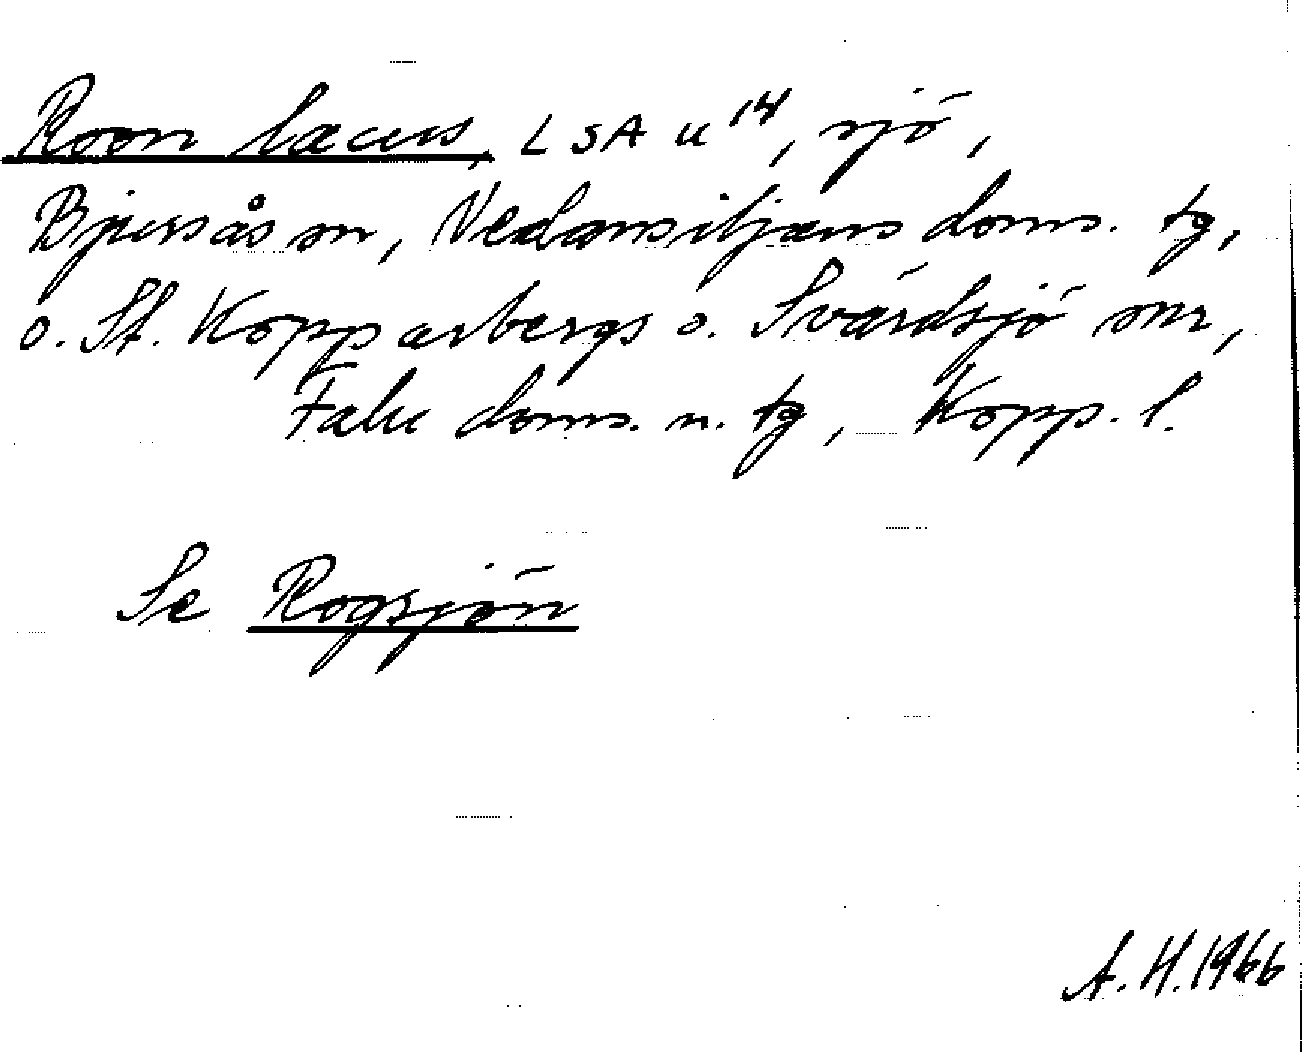 Roon lacus, LSA u 14, sjö,
Bjursås sn, Nedansiljans doms. tg,
o. St. Kopparbergs o. Svärdsjö snr,
Falu doms. n. tg, Kopp. l.
Se Rogsjön
A.H.1966